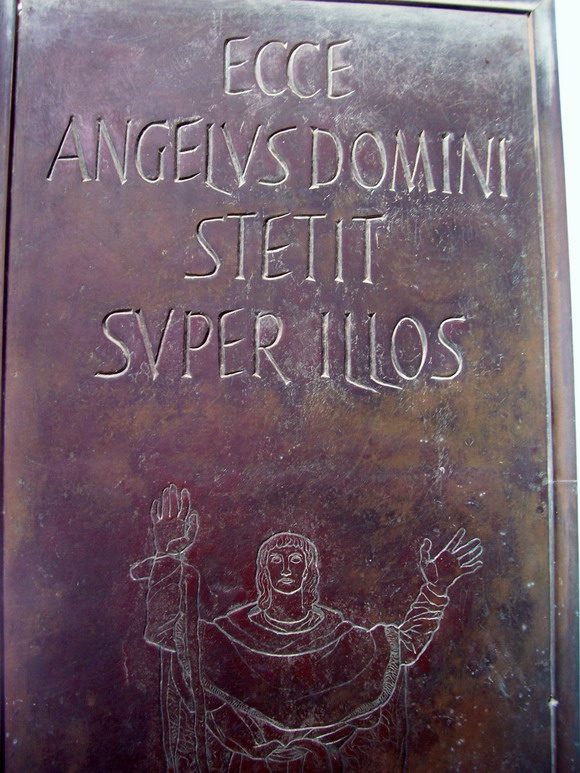 ECCE
ANGELVS DOMINI
STETIT
SVPER ILLOS